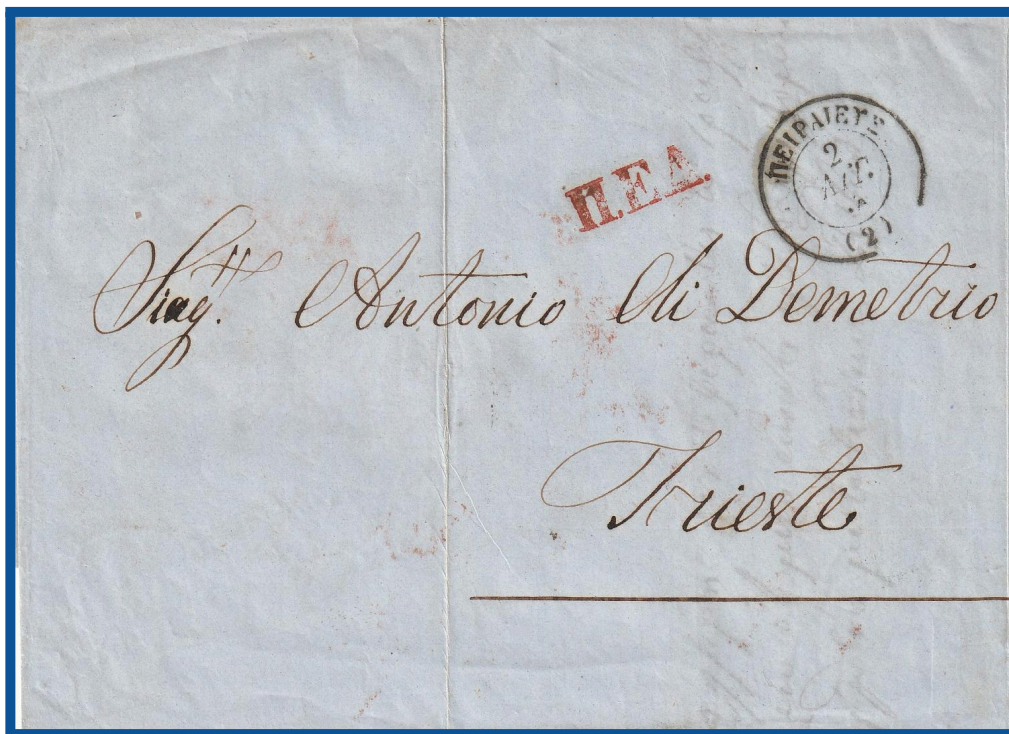 Π.Ε.Δ.
ΠΕΙΡΑΙΕΥΣ
2
ΑΥΓ.
(2)
Sigr. Antonio di Demetrio
Trieste